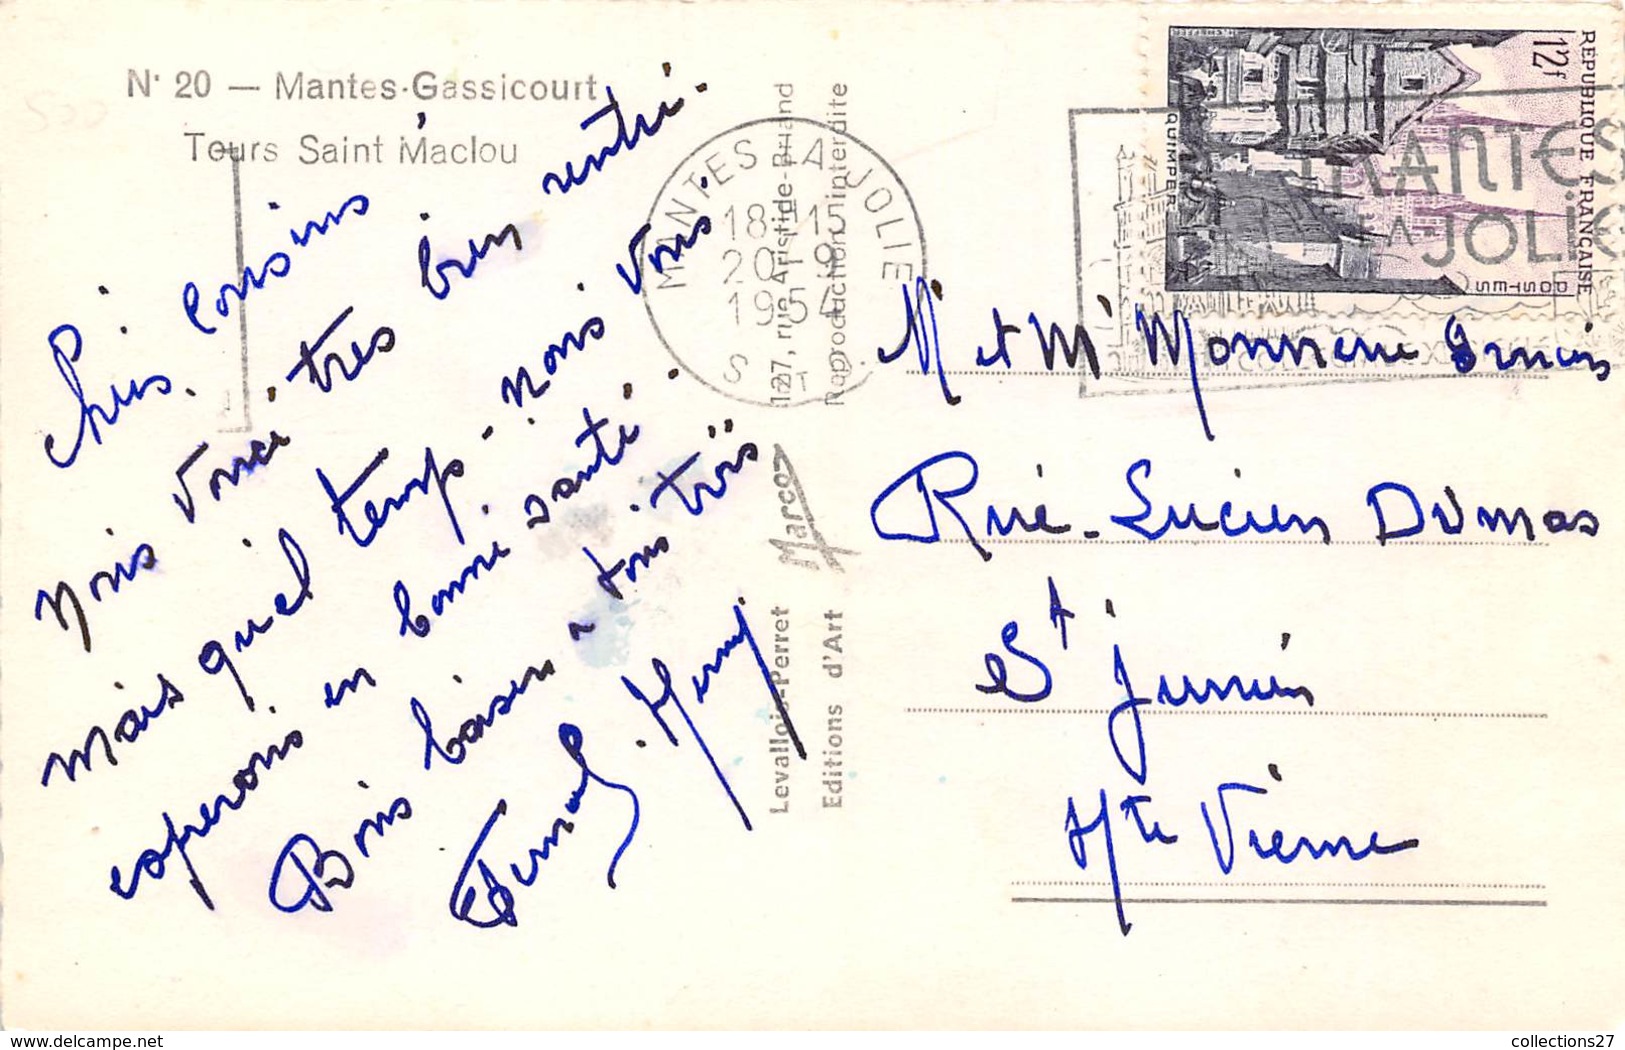 N° 20 — Mantes-Gassicourt
Tours Saint Maclou
Chers Cousins
Nous voici très bien rentré.
mais quel temps - nous vous
esperons en bonne santé.
Bons baisers à tous trois
Fernand. Henry
127, rue Aristide-Briand
Levallois-Perret
Reproduction interdite
Editions d'Art
Marco
MANTES LA JOLIE
18 H 15
20 - 9
1954
S. & O.
RÉPUBLIQUE FRANÇAISE
POSTES
12f
QUIMPER
MANTES
LA
JOLIE
M et Me
Rue Lucien Dumas
St Junien
Hte Vienne
collections27